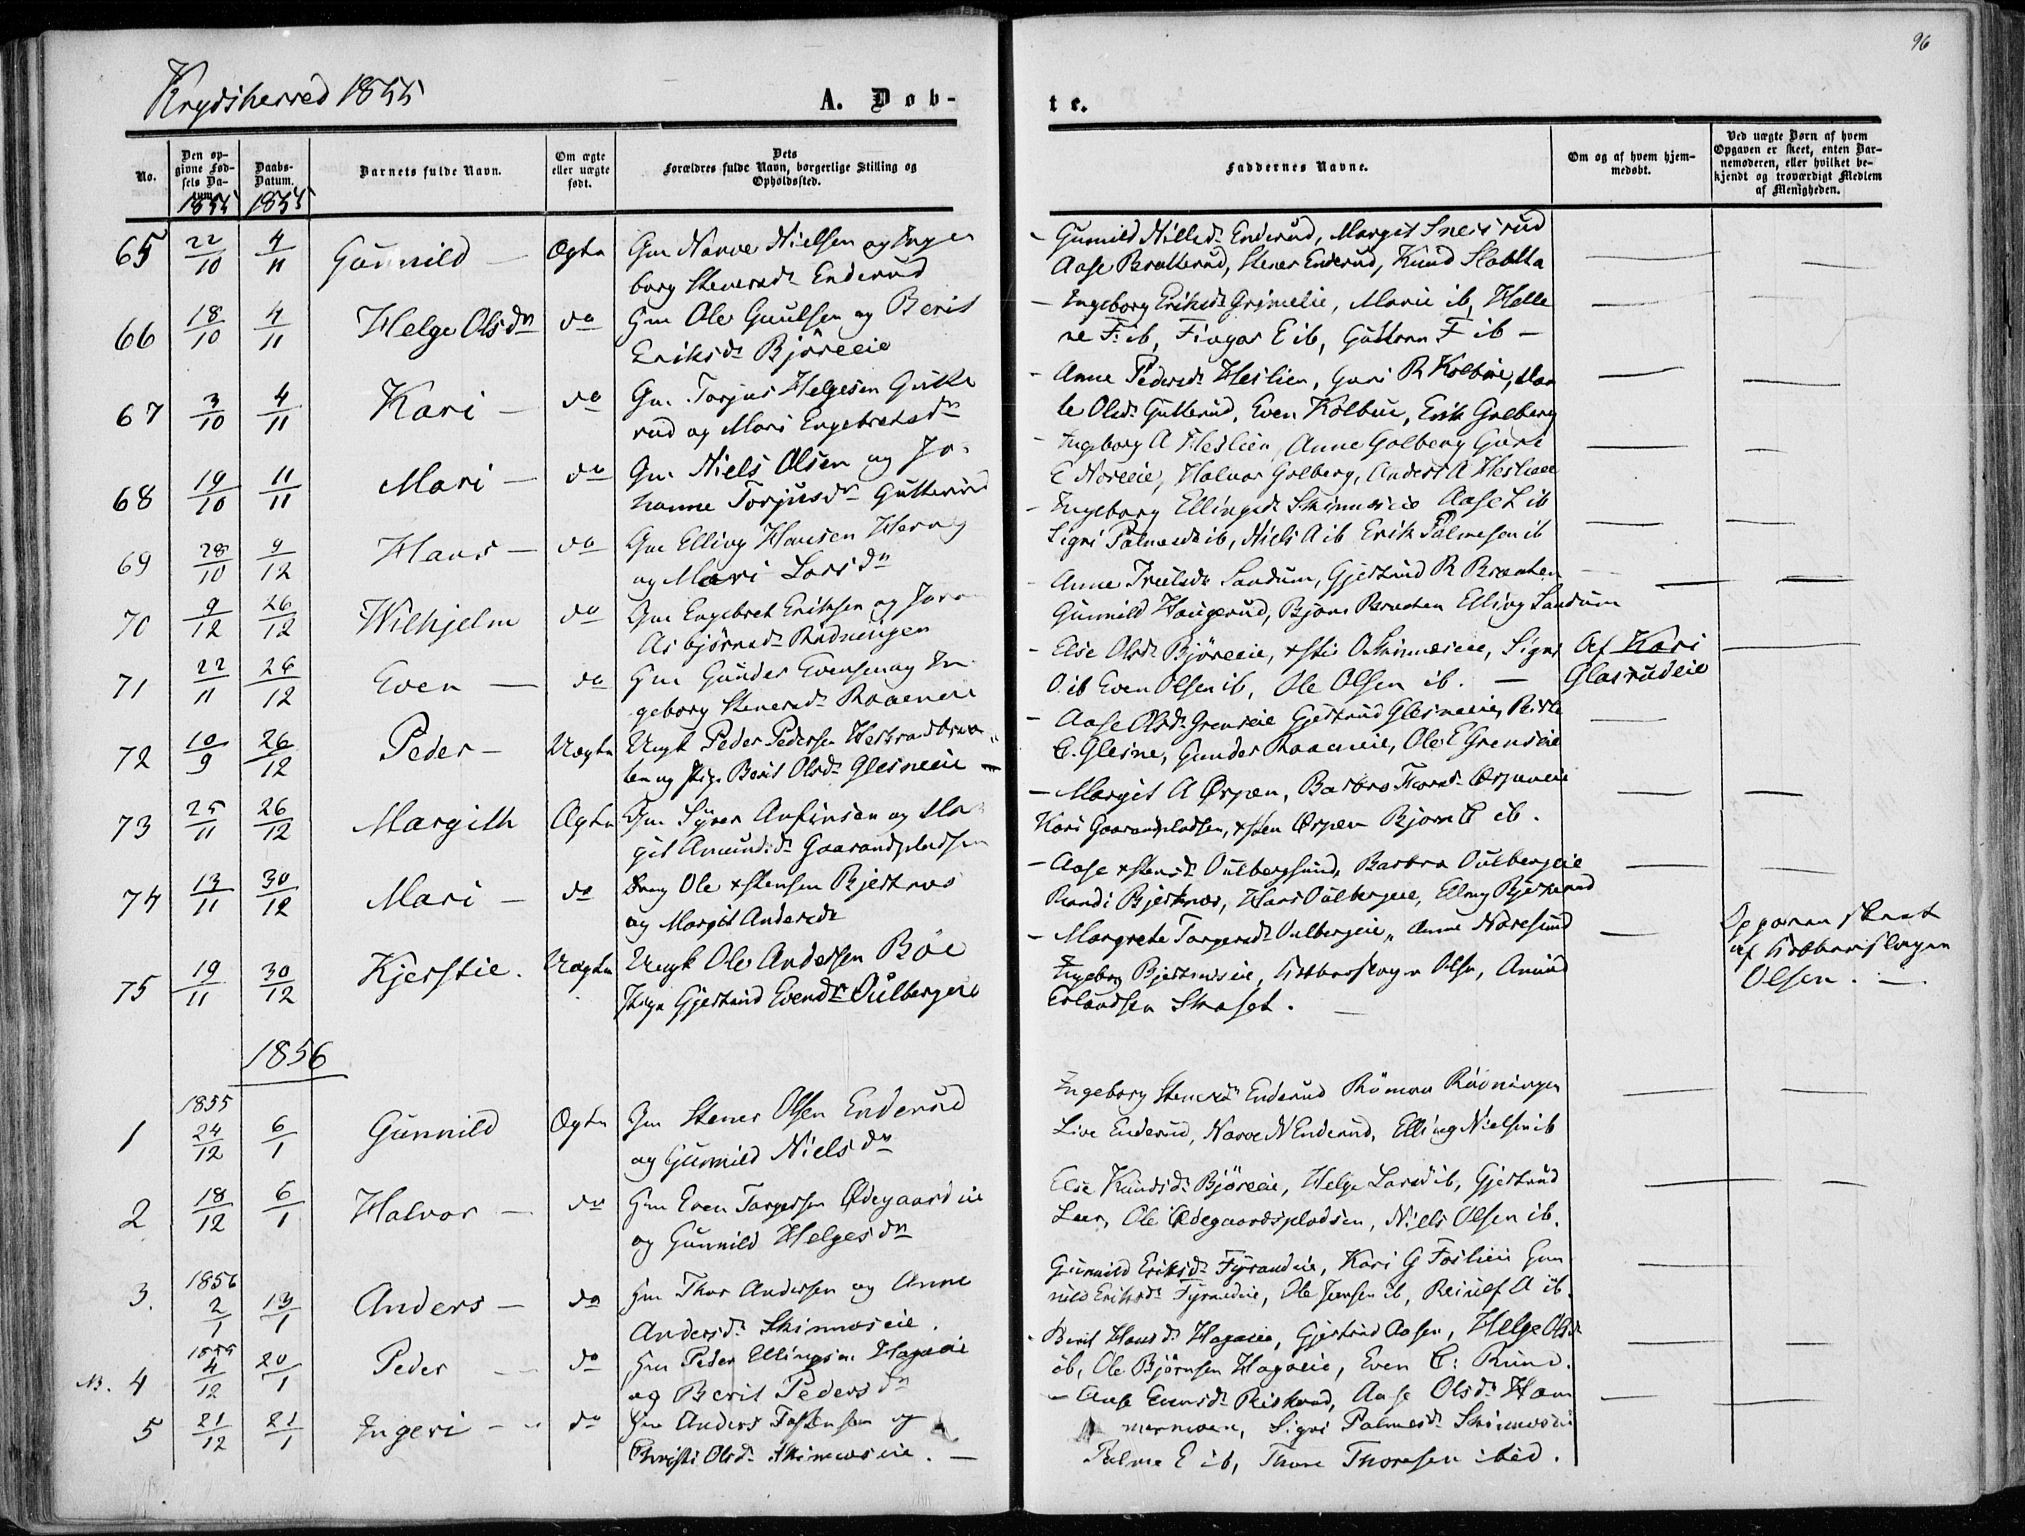 96
Krydsherred 1855
A. Døb-
te.
No.
Den opgivne Fødsels Datum.
1855
Daabs-Datum.
1855
Barnets fulde Navn.
Om ægte eller uægte født.
Dets Forældres fulde Navn, borgerlige Stilling og Opholdssted.
Faddernes Navne.
Om og af hvem hjemmedøbt.
Ved uægte Børn af hvem Opgaven er skeet, enten Barnemoderen, eller hvilket bekjendt og troværdigt Medlem af Menigheden.
65 22/10 4/11 Gunnild — Ægte Gm Narve Nielsen og Inge
borg Stenersdr Enderud
- Gunnild Nillsdr Enderud, Margit Sneisrud
Aase Bratterud, Stener Enderud, Knud Slaatta
66 18/10 4/11 Helge Olsdn do Gm Ole Guulsen og Berit
Eriksdr Björeeie
- Ingeborg Eriksdr Grimelie, Marie ib, Helle
ne F. ib, Fingar E ib, Guttorm F ib —
67 3/10 4/11 Kari — do Gm Torjus Helgesen Gutte
rud og Mari Engebretsdr
- Anne Pedersdr Heslien, Guri R Kolbue, Mar
te Olsdr Gutterud, Even Kolbue, Erik Golberg
68 19/10 11/11 Mari — do Gm Niels Olsen og Jo-
hanne Torjusdr Gutterud
- Ingeborg A Heslien, Anne Golberg Guri
E Noreeie, Halvor Golberg, Anders A Heslien
69 28/10 9/12 Hans — do Gm Elling Hansen
og Mari Larsdn
- Ingeborg Ellingsdr Skinnæseie Aase L ib
Sigri Palmesdr ib, Niels A ib Erik Palmesen ib
70 9/12 26/12 Wilhjelm do Gm Engebret Eriksen og
Asbjørnsdr Rudningen
- Anne Truelsdr Sandum, Gjertrud R Braaten
Gunnild Haugerud, Bjørn Braaten Elling Sandum
71 22/11 26/12 Even — do Gm Gunder Evensen og In
geborg Stenersdr Raaeneie
- Else Olsdr Björeeie, xstie O Skinnæseie, Sigri
O. ib Even Olsen ib, Ole Olsen ib. —
Af Kari
Glasrudeie
72 10/9 26/12 Peder — Uægte Ungk Peder Pedersen Hestrandbraa-
ten og Pige Berit Olsdr Glesneeie —
- Aase Olsdr Grenseie Gjertrud Glesneeie,
C. Glesne, Gunder Raaeneie, Ole E Grenseie
73 25/11 26/12 Margith Ægte Gm Syver Anfinsen og Mar
git Amundsdr Gaarandpladsen
- Margit A Ørpen, Barbro Thorsdr Ørpeneie
Kari Gaarandpladsen, xsten Ørpen Bjørn C ib.
74 13/11 30/12 Mari — do Ole xstensen Bjertnæs
og Margit Andersdr
- Aase xstensdr Oulbergsund, Barbra Oulbergeie
Randi Bjertnæs, Hans Oulbergeie, Elling Bjertnæs
75 19/11 30/12 Kjerstie. Uægte Ungk Ole Andersen Böe
Pige Gjertrud Evensdr Oulbergeie
- Margrete Torgersdr Oulbergeie, Anne Noresund
Ingeborg Bjertnæseie, Olsen, Amund
Erlandsen Skaset. —
Opgaven skeet
af
Olsen. —
1856
1 1855 24/12 6/1 Gunnild Ægte Gm Stener Olsen Enderud
og Gunnild Nielsdn
Ingeborg Stenersdr Enderud Rudningen
Live Enderud, Narve N Enderud, Elling Nielsen ib
2 18/12 6/1 Halvor — do Gm Even Torgersen Ødegaardeie
og Gunnild Helgesdn
Else Knudsdr Björeeie, Helge Larsd ib, Gjertrud
Leer, Ole Ødegaardspladsen, Niels Olsen ib.
3. 1856 2/1 13/1 Anders — do Gm Thor Andersen og Anne
Andersdr Skinnæseie.
Gunnild Eriksdr Fyrandeie, Kari G Foslieie Gun
nild Eriksdr Fyrandeie, Ole Jensen ib, Reinulf A ib.
NB. 4 1855 4/12 20/1 Peder — do Gm Peder Ellingsen Hagaeie
og Berit Pedersdn
- Berit Hansdr Hagaeie, Gjertrud Aasen, Helge Olsdr
ib, Ole Bjørnsen Hagaeie, Even C:
5 21/12 21/1 Ingeri — do Gm Anders Tostensen og
Christi Olsdr Skinnæseie. —
- Aase Evensdr Riskerud, Aase Olsdr Ham
mermoen, Sigri Palmesdr Skinnæseie
Palme E ib, Thore Thoresen ibid.